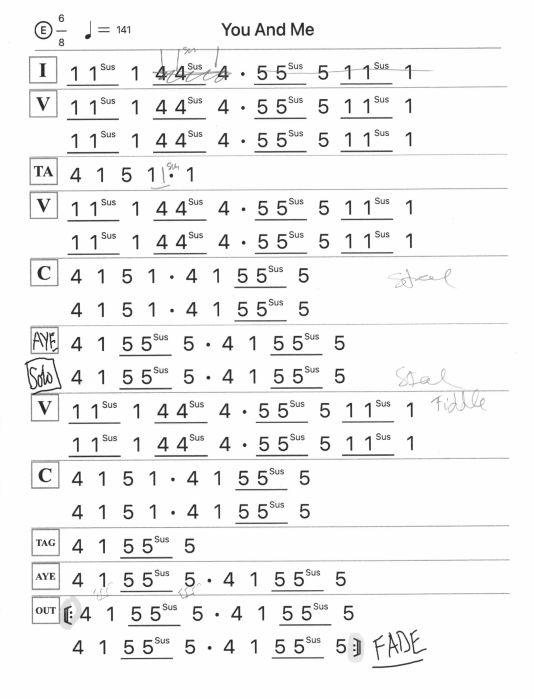 E 6/8 ♩= 141 You And Me
I 1 1Sus 1 4 4Sus 4 • 5 5Sus 5 1 1Sus 1
V 1 1Sus 1 4 4Sus 4 • 5 5Sus 5 1 1Sus 1
1 1Sus 1 4 4Sus 4 • 5 5Sus 5 1 1Sus 1
TA 4 1 5 1 1sus • 1
V 1 1Sus 1 4 4Sus 4 • 5 5Sus 5 1 1Sus 1
1 1Sus 1 4 4Sus 4 • 5 5Sus 5 1 1Sus 1
C 4 1 5 1 • 4 1 5 5Sus 5 Steel
4 1 5 1 • 4 1 5 5Sus 5
AYE 4 1 5 5Sus 5 • 4 1 5 5Sus 5
Solo 4 1 5 5Sus 5 • 4 1 5 5Sus 5 Steel
V 1 1Sus 1 4 4Sus 4 • 5 5Sus 5 1 1Sus 1 Fiddle
1 1Sus 1 4 4Sus 4 • 5 5Sus 5 1 1Sus 1
C 4 1 5 1 • 4 1 5 5Sus 5
4 1 5 1 • 4 1 5 5Sus 5
TAG 4 1 5 5Sus 5
AYE 4 1 5 5Sus 5 • 4 1 5 5Sus 5
OUT 𝄆 4 1 5 5Sus 5 • 4 1 5 5Sus 5
4 1 5 5Sus 5 • 4 1 5 5Sus 5 𝄇 FADE